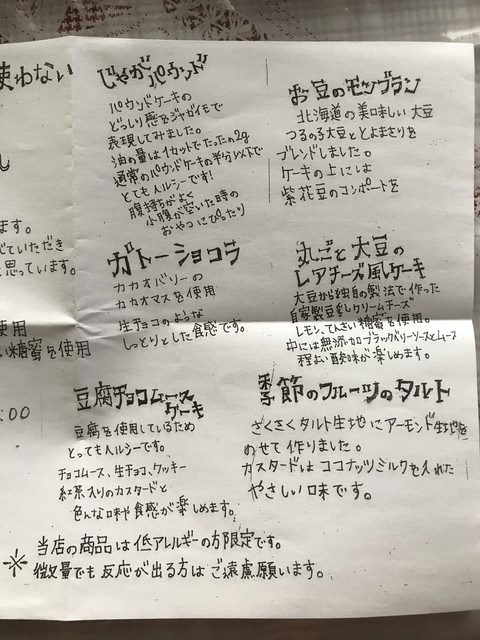 使わない
し
ます。
べていただき
思っています。
使用
い糖蜜を使用
:00
じゃがパウンド
パウンドケーキの
どっしり感をジャガイモで
表現してみました。
油の量は1カットでたったの2g
通常のパウンドケーキの半分以下で
とてもヘルシーです!
腹持ちがよく
小腹が空いた時の
おやつにぴったり
お豆のモンブラン
北海道の美味しい大豆
つるの子大豆ととよまさりを
ブレンドしました。
ケーキの上には
紫花豆のコンポートを
ガトーショコラ
カカオバリーの
カカオマスを使用
生チョコのような
しっとりとした食感です。
丸ごと大豆の
レアチーズ風ケーキ
大豆から独自の製法で作った
自家製豆乳クリームチーズ
レモン、てんさい糖蜜を使用。
中には無添加ブラックベリーソースとムース
程よい酸味が楽しめます。
豆腐チョコムース
ケーキ
豆腐を使用しているため
とってもヘルシーです。
チョコムース、生チョコ、クッキー
紅茶入りのカスタードと
色んな味や食感が楽しめます。
季節のフルーツのタルト
ざくざくタルト生地にアーモンド生地を
のせて作りました。
カスタードはココナッツミルクを入れた
やさしい味です。
※当店の商品は低アレルギーの方限定です。
微量でも反応が出る方はご遠慮願います。